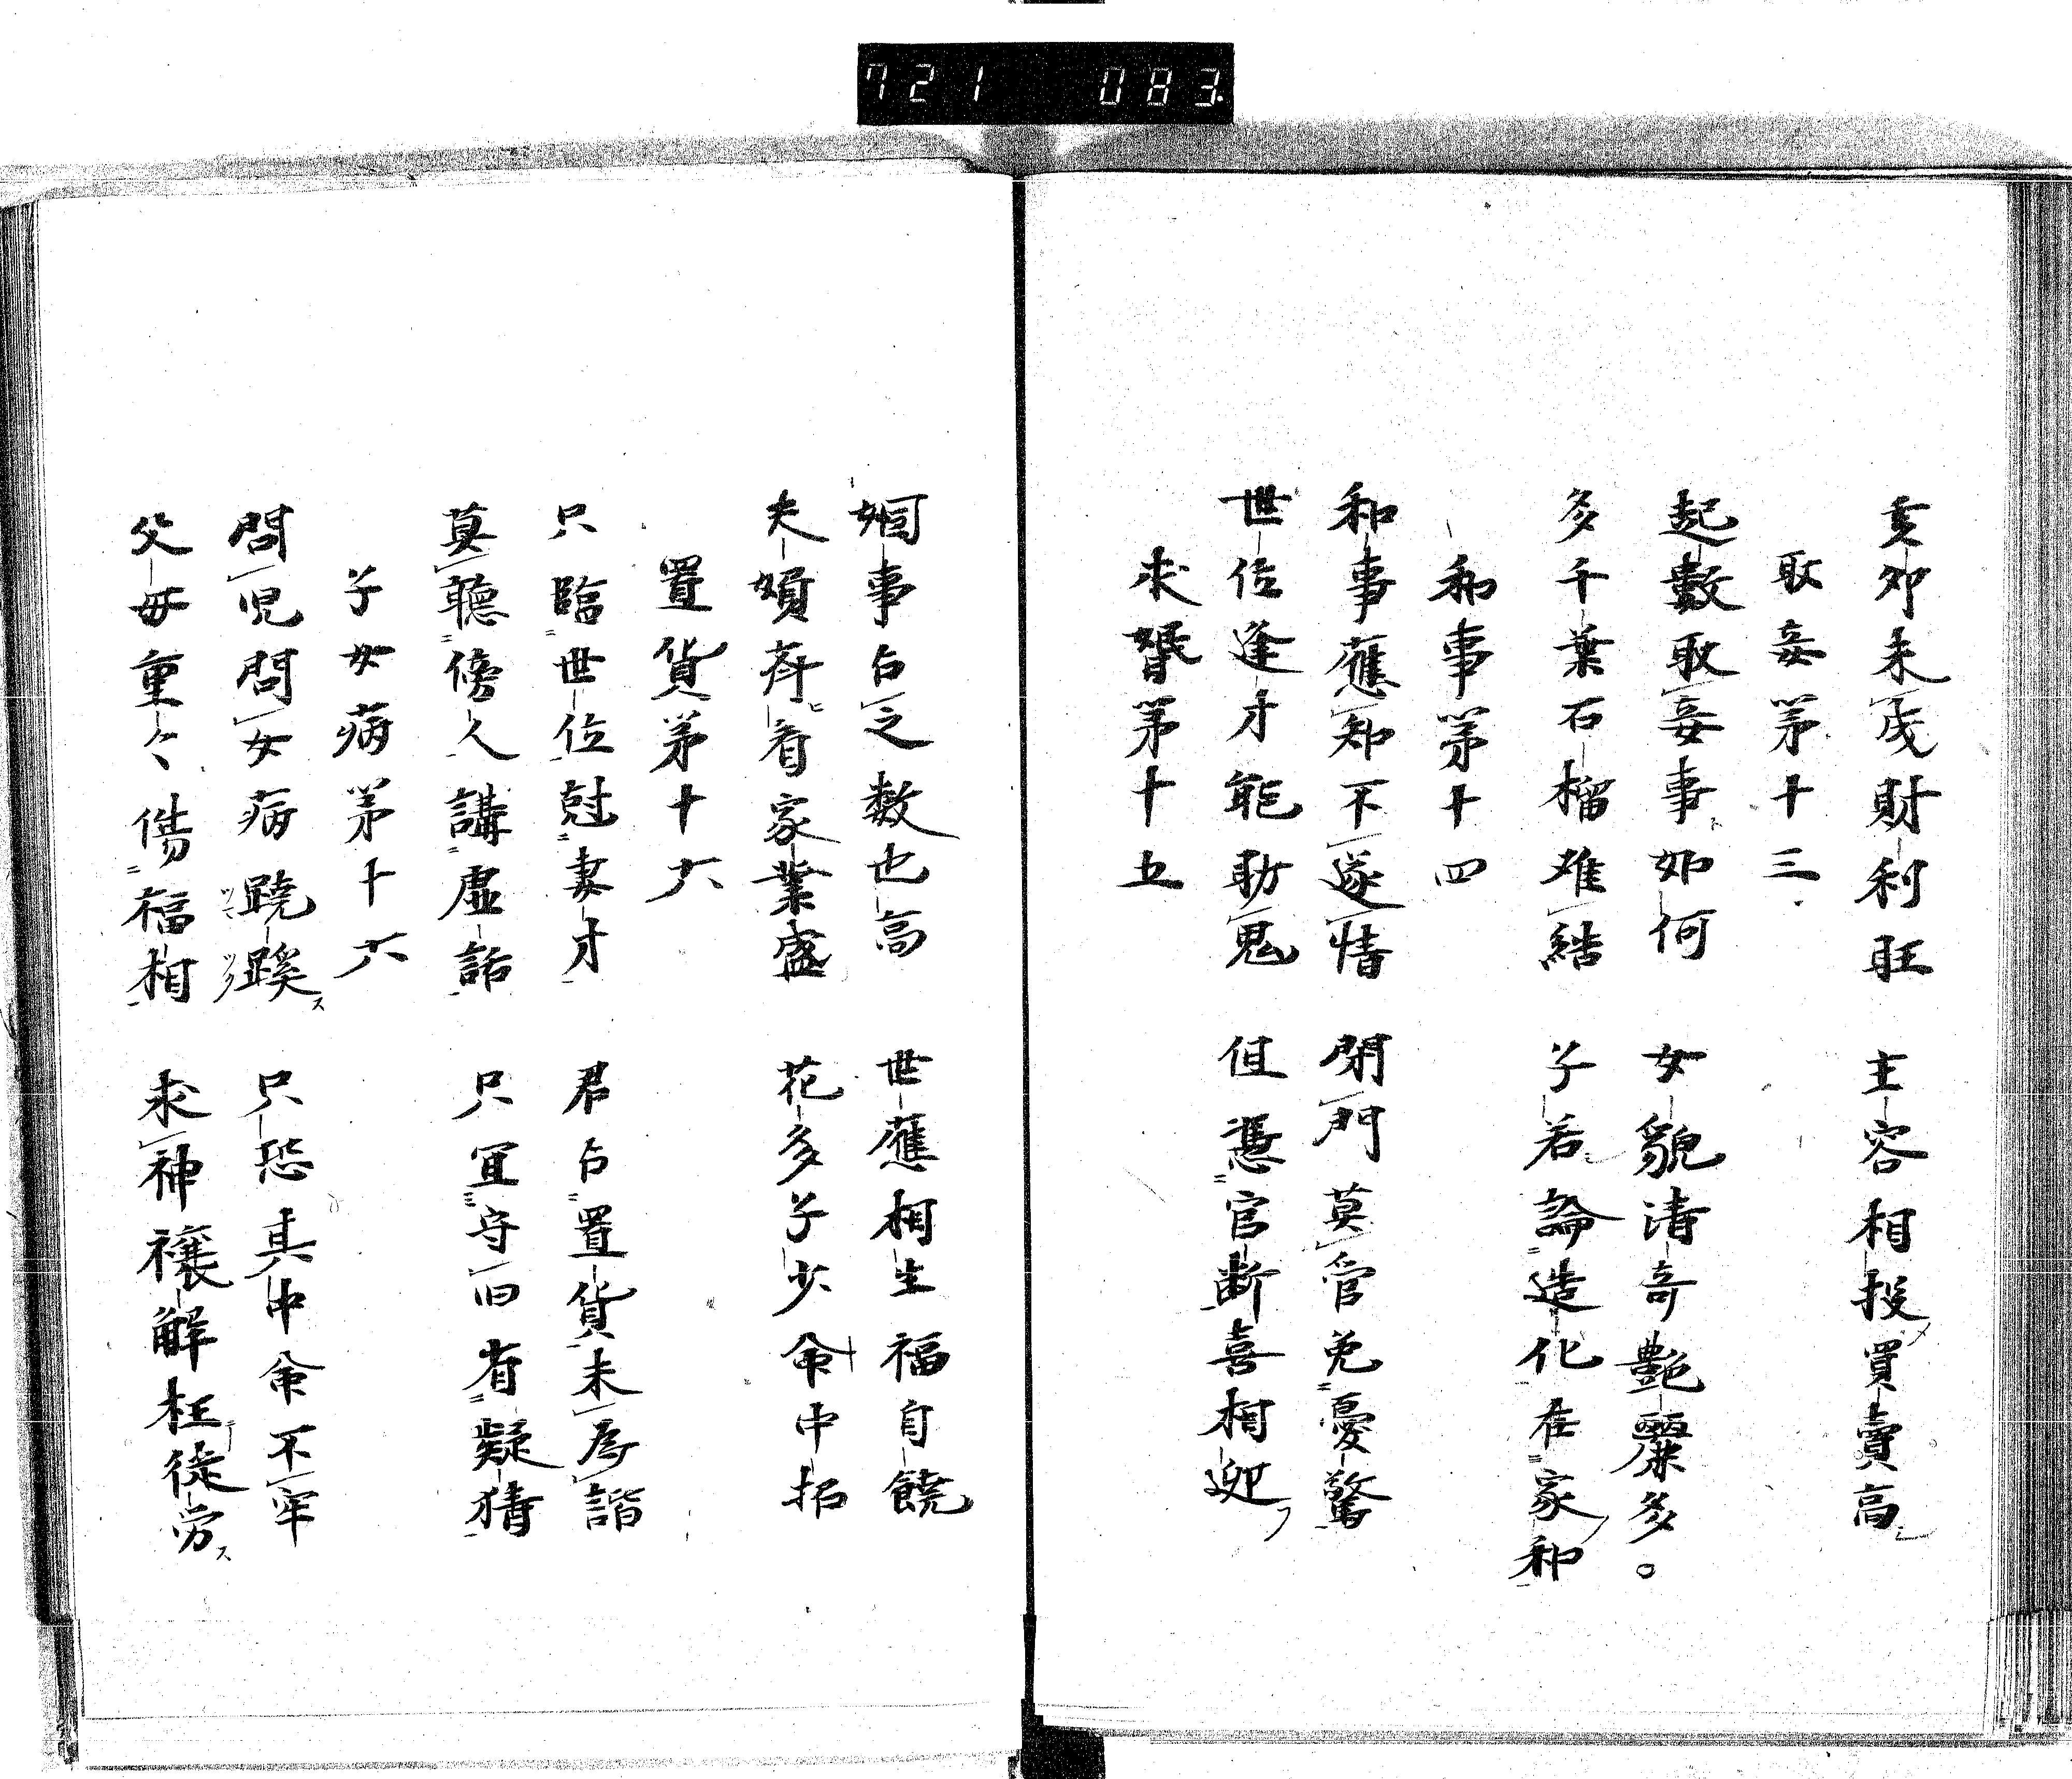 721 083
亥卯未成財利旺 主容相投買賣高
取妾第十三
起數取妾事如何 女貌清奇艷麗多。
多千葉石榴难結 子若論造化在家和
和事第十四
和事應知不遂情 閉門莫管免憂驚
世位逢才能助鬼 但憑官断喜相迎
求婚第十五
婣事占之数也高 世應相生福自饒
夫嬪并看家業盛 花多子少命中招
置貨第十六
只臨世位尅妻才 君占置貨未為諧
莫聽傍人講虛話 只宜守旧有疑猜
子女病第十六
問児問女病蹺蹊 只恐其中命不牢
父母重々傷福相 求神禳解枉徒劳